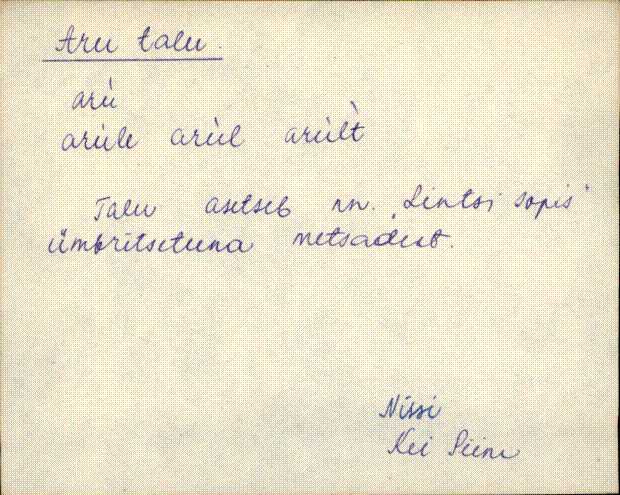 Aru talu.
arù
arùle arùl arùlt
Talu asetseb nn. "Lintsi sopis"
ümbritsetuna metsadest.
Nissi
Kei Siim